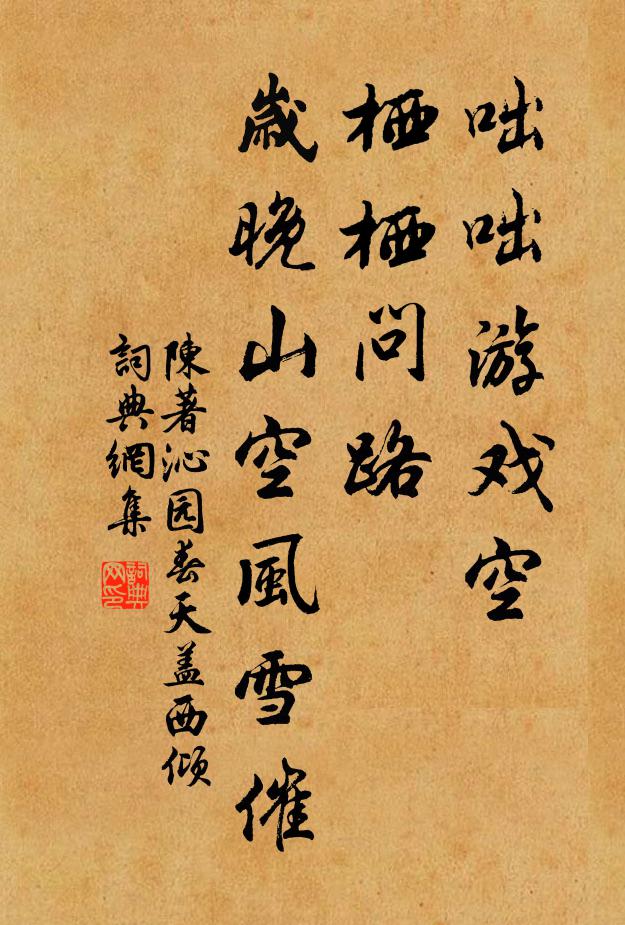 咄咄游戏空
栖栖问路
歲晚山空風雪催
陳著沁园春天盖西倾
詞典網集
詞典网印